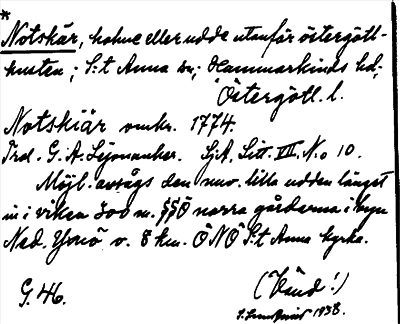 *
Notskär, holme eller udde utanför östergöt-
kusten; S:t Anna sn; Hammarkinds hd;
Östergötl. l.
Notskiär omkr. 1774.
Trol. G. A. Lejonanker. SjA, Litt. VII. No 10.
Möjl. avsågs den nuv. lilla udden längst
in i viken 300 m. §§O norra gårdarna i byn
Ned. Yxnö o. 8 km. ÖNÖ S:t Anna kyrka.
G. 46. (Vänd!)
1938.